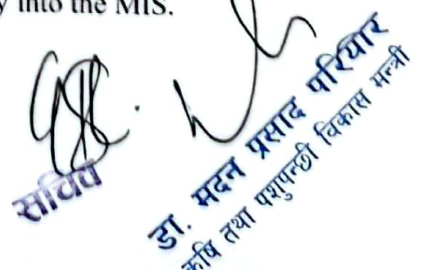 into the MIS.
सचिव
डा. मदन प्रसाद परियार
कृषि तथा पशुपन्छी विकास मन्त्री